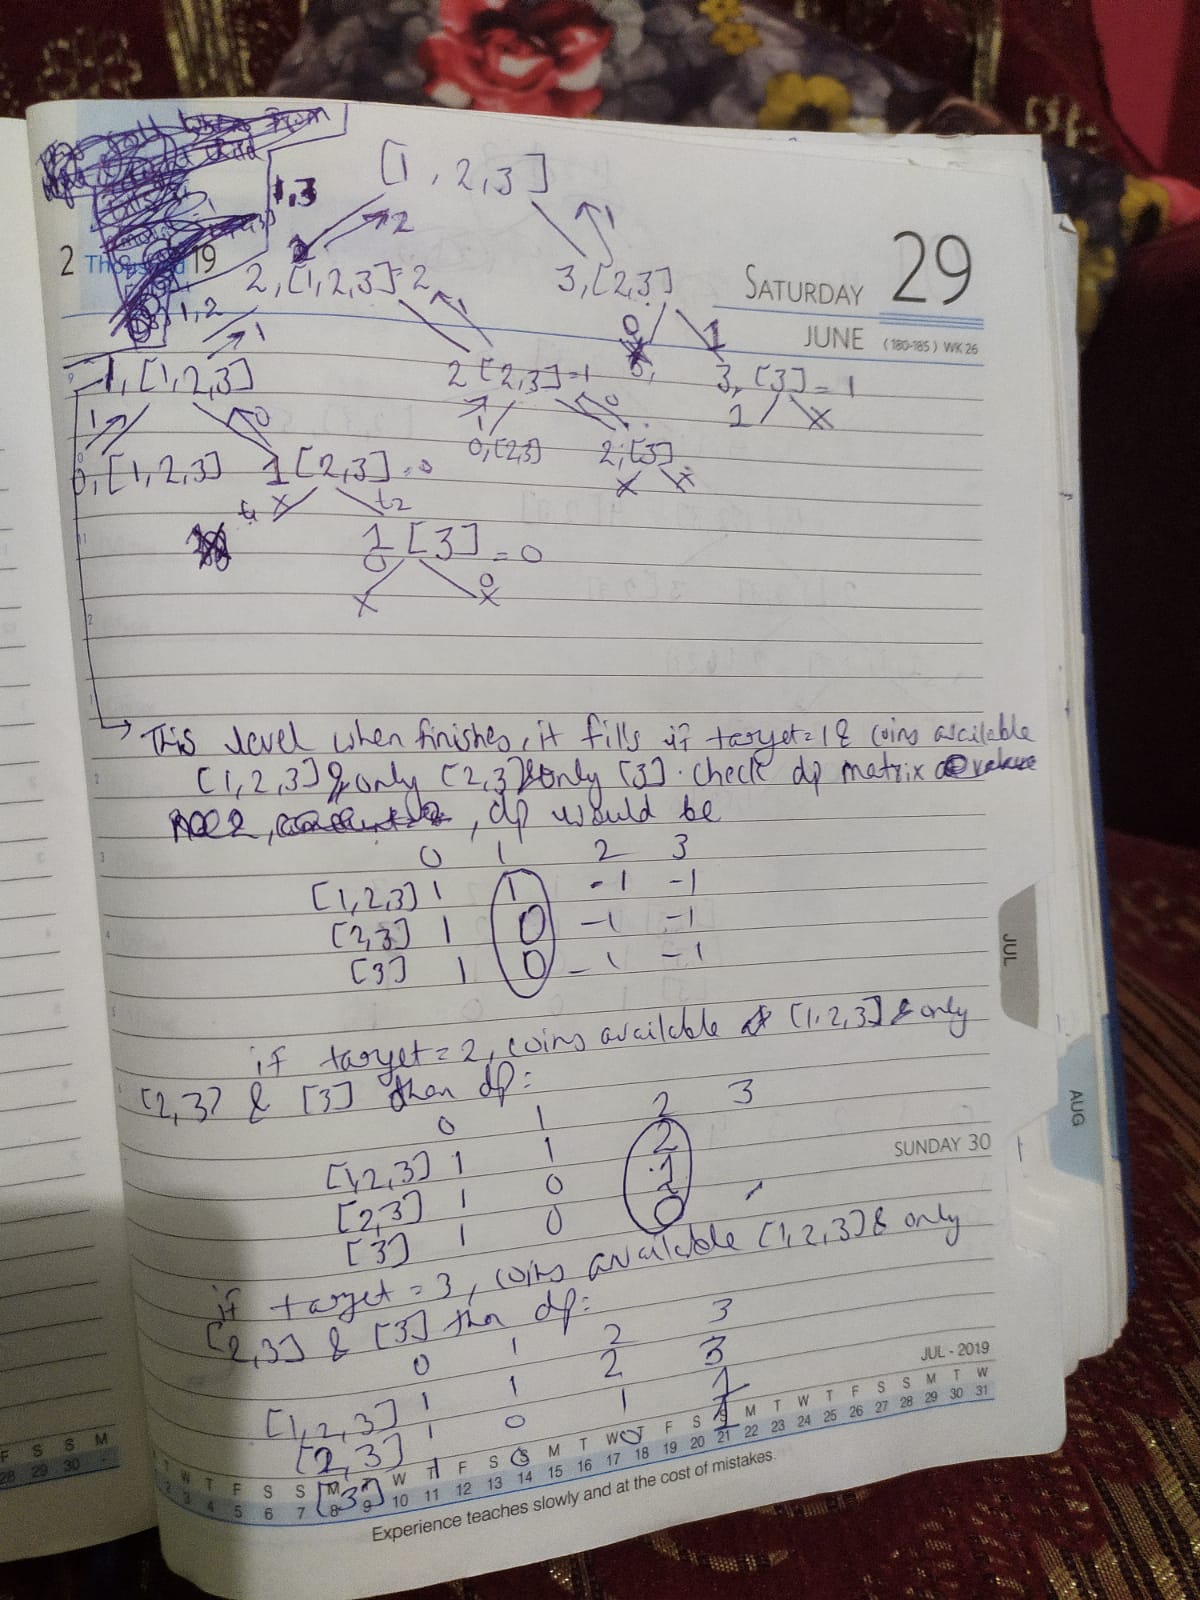 [1, 2, 3]
1,3
2
1
2 Thousand 19
2, [1, 2, 3] = 2
3, [2,3]
SATURDAY 29
JUNE (180-185) WK 26
1, 2
1
1
0
1
-1, [1, 2, 3]
2 [2, 3] = 1
0,
3, [3] = 1
1
0
1
0
1 X
0, [1, 2, 3]
1 [2, 3] = 0
0, [2,3]
2, [3]
X X
X
1 [3] = 0
0
0
X X
This level when finishes, it fills if target=1 & coins available
[1, 2, 3] & only [2, 3] & only [3]. Check dp matrix
, dp would be
0 1 2 3
[1, 2, 3] 1 1 -1 -1
[2, 3] 1 0 -1 -1
[3] 1 0 -1 -1
if target = 2, coins available [1, 2, 3] & only
[2, 3] & [3] then dp:
0 1 2 3
[1, 2, 3] 1 1 2
[2, 3] 1 0 1
[3] 1 0 0
SUNDAY 30
if target = 3, coins available [1, 2, 3] & only
[2, 3] & [3] then dp:
0 1 2 3
[1, 2, 3] 1 1 2 3
[2, 3] 1 0 1 1
[3] 1 0 0 1
JUL - 2019
T W T F S S M T W T F S S M T W T F S S M T W T F S S M T W
2 3 4 5 6 7 8 9 10 11 12 13 14 15 16 17 18 19 20 21 22 23 24 25 26 27 28 29 30 31
Experience teaches slowly and at the cost of mistakes.
JUL
AUG
F S S M
28 29 30